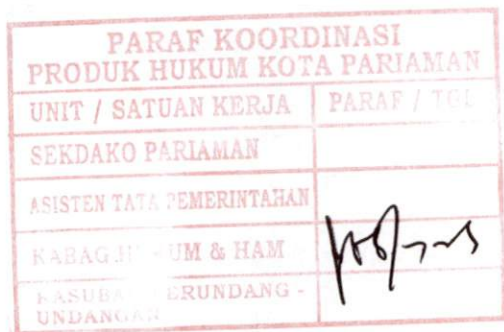 PARAF KOORDINASI
PRODUK HUKUM KOTA PARIAMAN
UNIT / SATUAN KERJA PARAF / TGL
SEKDAKO PARIAMAN
ASISTEN TATA PEMERINTAHAN
KABAG & HAM
UNDANGAN